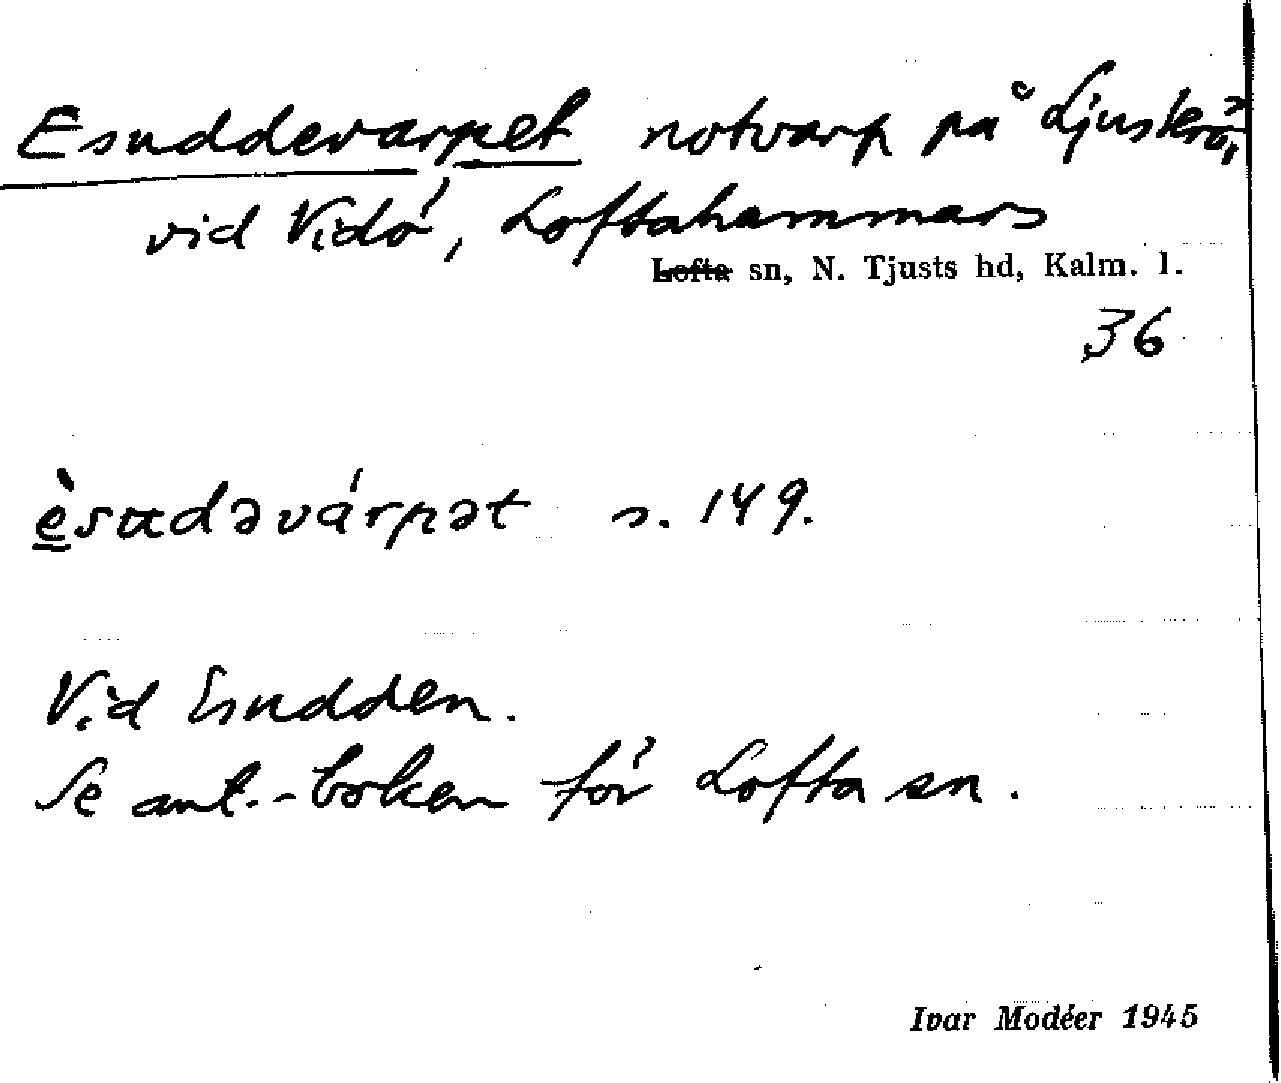 Esuddevarpet notvarp på Ljuskerö,
vid Vidö, Loftahammars
Lofta sn, N. Tjusts hd, Kalm. l.
36
èsudəvárpət s. 149.
Vid Esudden.
Se ant.-boken för Lofta sn.
Ivar Modéer 1945